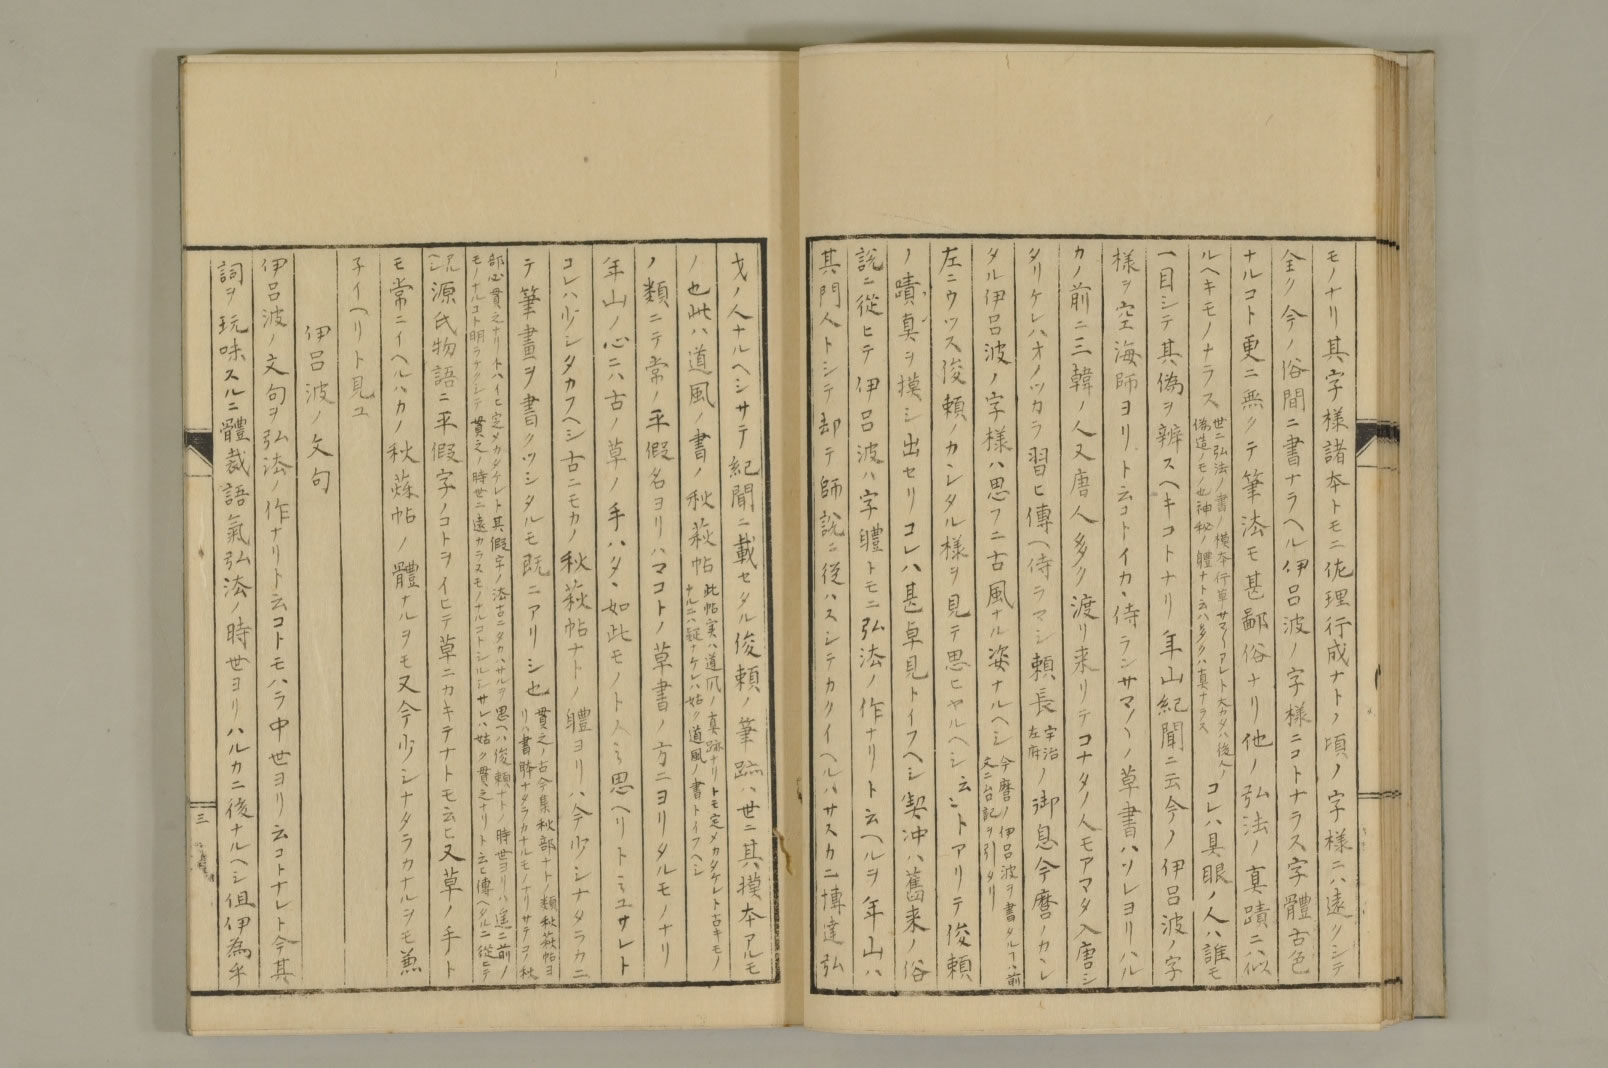 モノナリ其字様諸本トモニ佐理行成ナトノ頃ノ字様ニハ遠クシテ
全ク今ノ俗間ニ書ナラヘル伊呂波ノ字様ニコトナラス字體古色
ナルコト更ニ無クテ筆法モ甚鄙俗ナリ他ノ弘法ノ真蹟ニハ似
ルヘキモノナラス
世ニ弘法ノ書ノ模本行草サマ〱アレト大カタハ後人ノ
偽造ノモノ也神秘ノ體ナト云ハ多クハ真ナラス
コレハ具眼ノ人ハ誰モ
一目シテ其偽ヲ辨スヘキコトナリ年山紀聞ニ云今ノ伊呂波ノ字
様ヲ空海師ヨリト云コトイカヽ侍ランサマ〱ノ草書ハソレヨリハル
カノ前ニ三韓ノ人又唐人多ク渡リ来リテコナタノ人モアマタ入唐シ
タリケレハオノツカラ習ヒ傳ヘ侍ラマシ頼長
宇治
左府
ノ御息今麿ノカヽレ
タル伊呂波ノ字様ハ思フニ古風ナル姿ナルヘシ
今麿ノ伊呂波ヲ書タルヿハ前
文ニ台記ヲ引タリ
左ニウツス俊頼ノカヽンタル様ヲ見テ思ヒヤルヘシ云々トアリテ俊頼
ノ蹟真ヲ摸シ出セリコレハ甚卓見トイフヘシ契沖ハ舊来ノ俗
説ニ從ヒテ伊呂波ハ字體トモニ弘法ノ作ナリト云ヘルヲ年山ハ
其門人トシテ却テ師説ニ從ハスシテカクイヘルハサスカニ博達弘
才ノ人ナルヘシサテ紀聞ニ載セタル俊頼ノ筆跡ハ世ニ其摸本アルモ
ノ也此ハ道風ノ書ノ秋萩帖
此帖実ハ道風ノ真跡ナリトモ定メカタケレト古キモノ
ナルニハ疑ナケレハ姑ク道風ノ書トイフヘシ
ノ類ニテ常ノ平假名ヨリハマコトノ草書ノ方ニヨリタルモノナリ
年山ノ心ニハ古ノ草ノ手ハタヽ如此モノトノミ思ヘリトミユサレト
コレハ少シタカフヘシ古ニモカノ秋萩帖ナトノ體ヨリハ今少シナタラカニ
テ筆畫ヲ書クツシタルモ既ニアリシ也
貫之ノ古今集秋部ナトノ類秋萩帖ヨ
リハ書時ナタラカナルモノナリサテコノ秋
部必貫之ナリトハイヒ定メカタケレト其假字ノ法古ニタカハサルヲ思ヘハ俊頼ナトノ時世ヨリハ遙ニ前ノ
モノナルコト明ラケクシテ貫之ノ時世ニ遠カラスモノナルコトシルシサレハ姑ク貫之ナリト云ヒ傳ヘタルニ從ヒテ
アルヘシ
源氏物語ニ平假字ノコトヲイヒテ草ニカキテナトモ云ヒ又草ノ手ト
モ常ニイヘルハカノ秋蘓帖ノ體ナルヲモ又今少シナタラカナルヲモ兼
子イヘリト見ユ
伊呂波ノ文句
伊呂波ノ文句ヲ弘法ノ作ナリト云コトモハラ中世ヨリ云コトナレト今其
詞ヲ玩味スルニ體裁語氣弘法ノ時世ヨリハルカニ後ナルヘシ但伊為乎
三